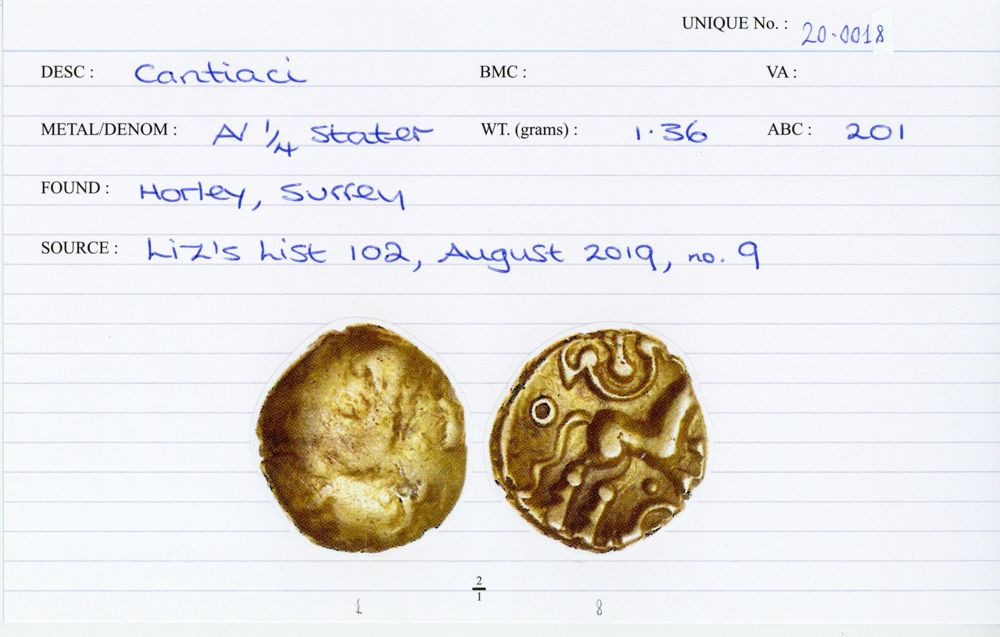 UNIQUE No. : 20·0018
DESC : Cantiaci BMC : VA :
METAL/DENOM : AV 1/4 Stater WT. (grams) : 1·36 ABC : 201
FOUND : Horley, Surrey
SOURCE : Liz's List 102, August 2019, no. 9
2/1
1 8